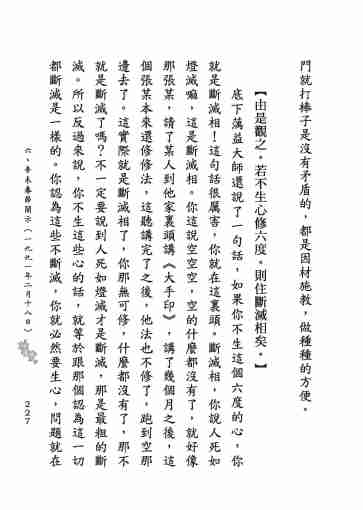 門就打棒子是沒有矛盾的，都是因材施教，做種種的方便。
【由是觀之。若不生心修六度。則住斷滅相矣。】
底下蕅益大師還說了一句話，如果你不生這個六度的心，你
就是斷滅相！這句話很厲害，你就在這裏頭。斷滅相，你說人死如
燈滅嘛，這是斷滅相。你這說空空空，空的什麼都沒有了，就好像
那張某，請了某人到他家裏頭講《大手印》，講了幾個月之後，這
個張某本來還修修法，這聽講完了之後，他法也不修了，跑到空那
邊去了。這實際就是斷滅相了，你那無可修，什麼都沒有了，那不
就是斷滅了嗎？不一定要說到人死如燈滅才是斷滅，那是最粗的斷
滅。所以反過來說，你不生這些心的話，就等於跟那個認為這一切
都斷滅是一樣的。你認為這些不斷滅，你就必然要生心。問題就在
六、辛未春節開示（一九九一年二月十八日）
227